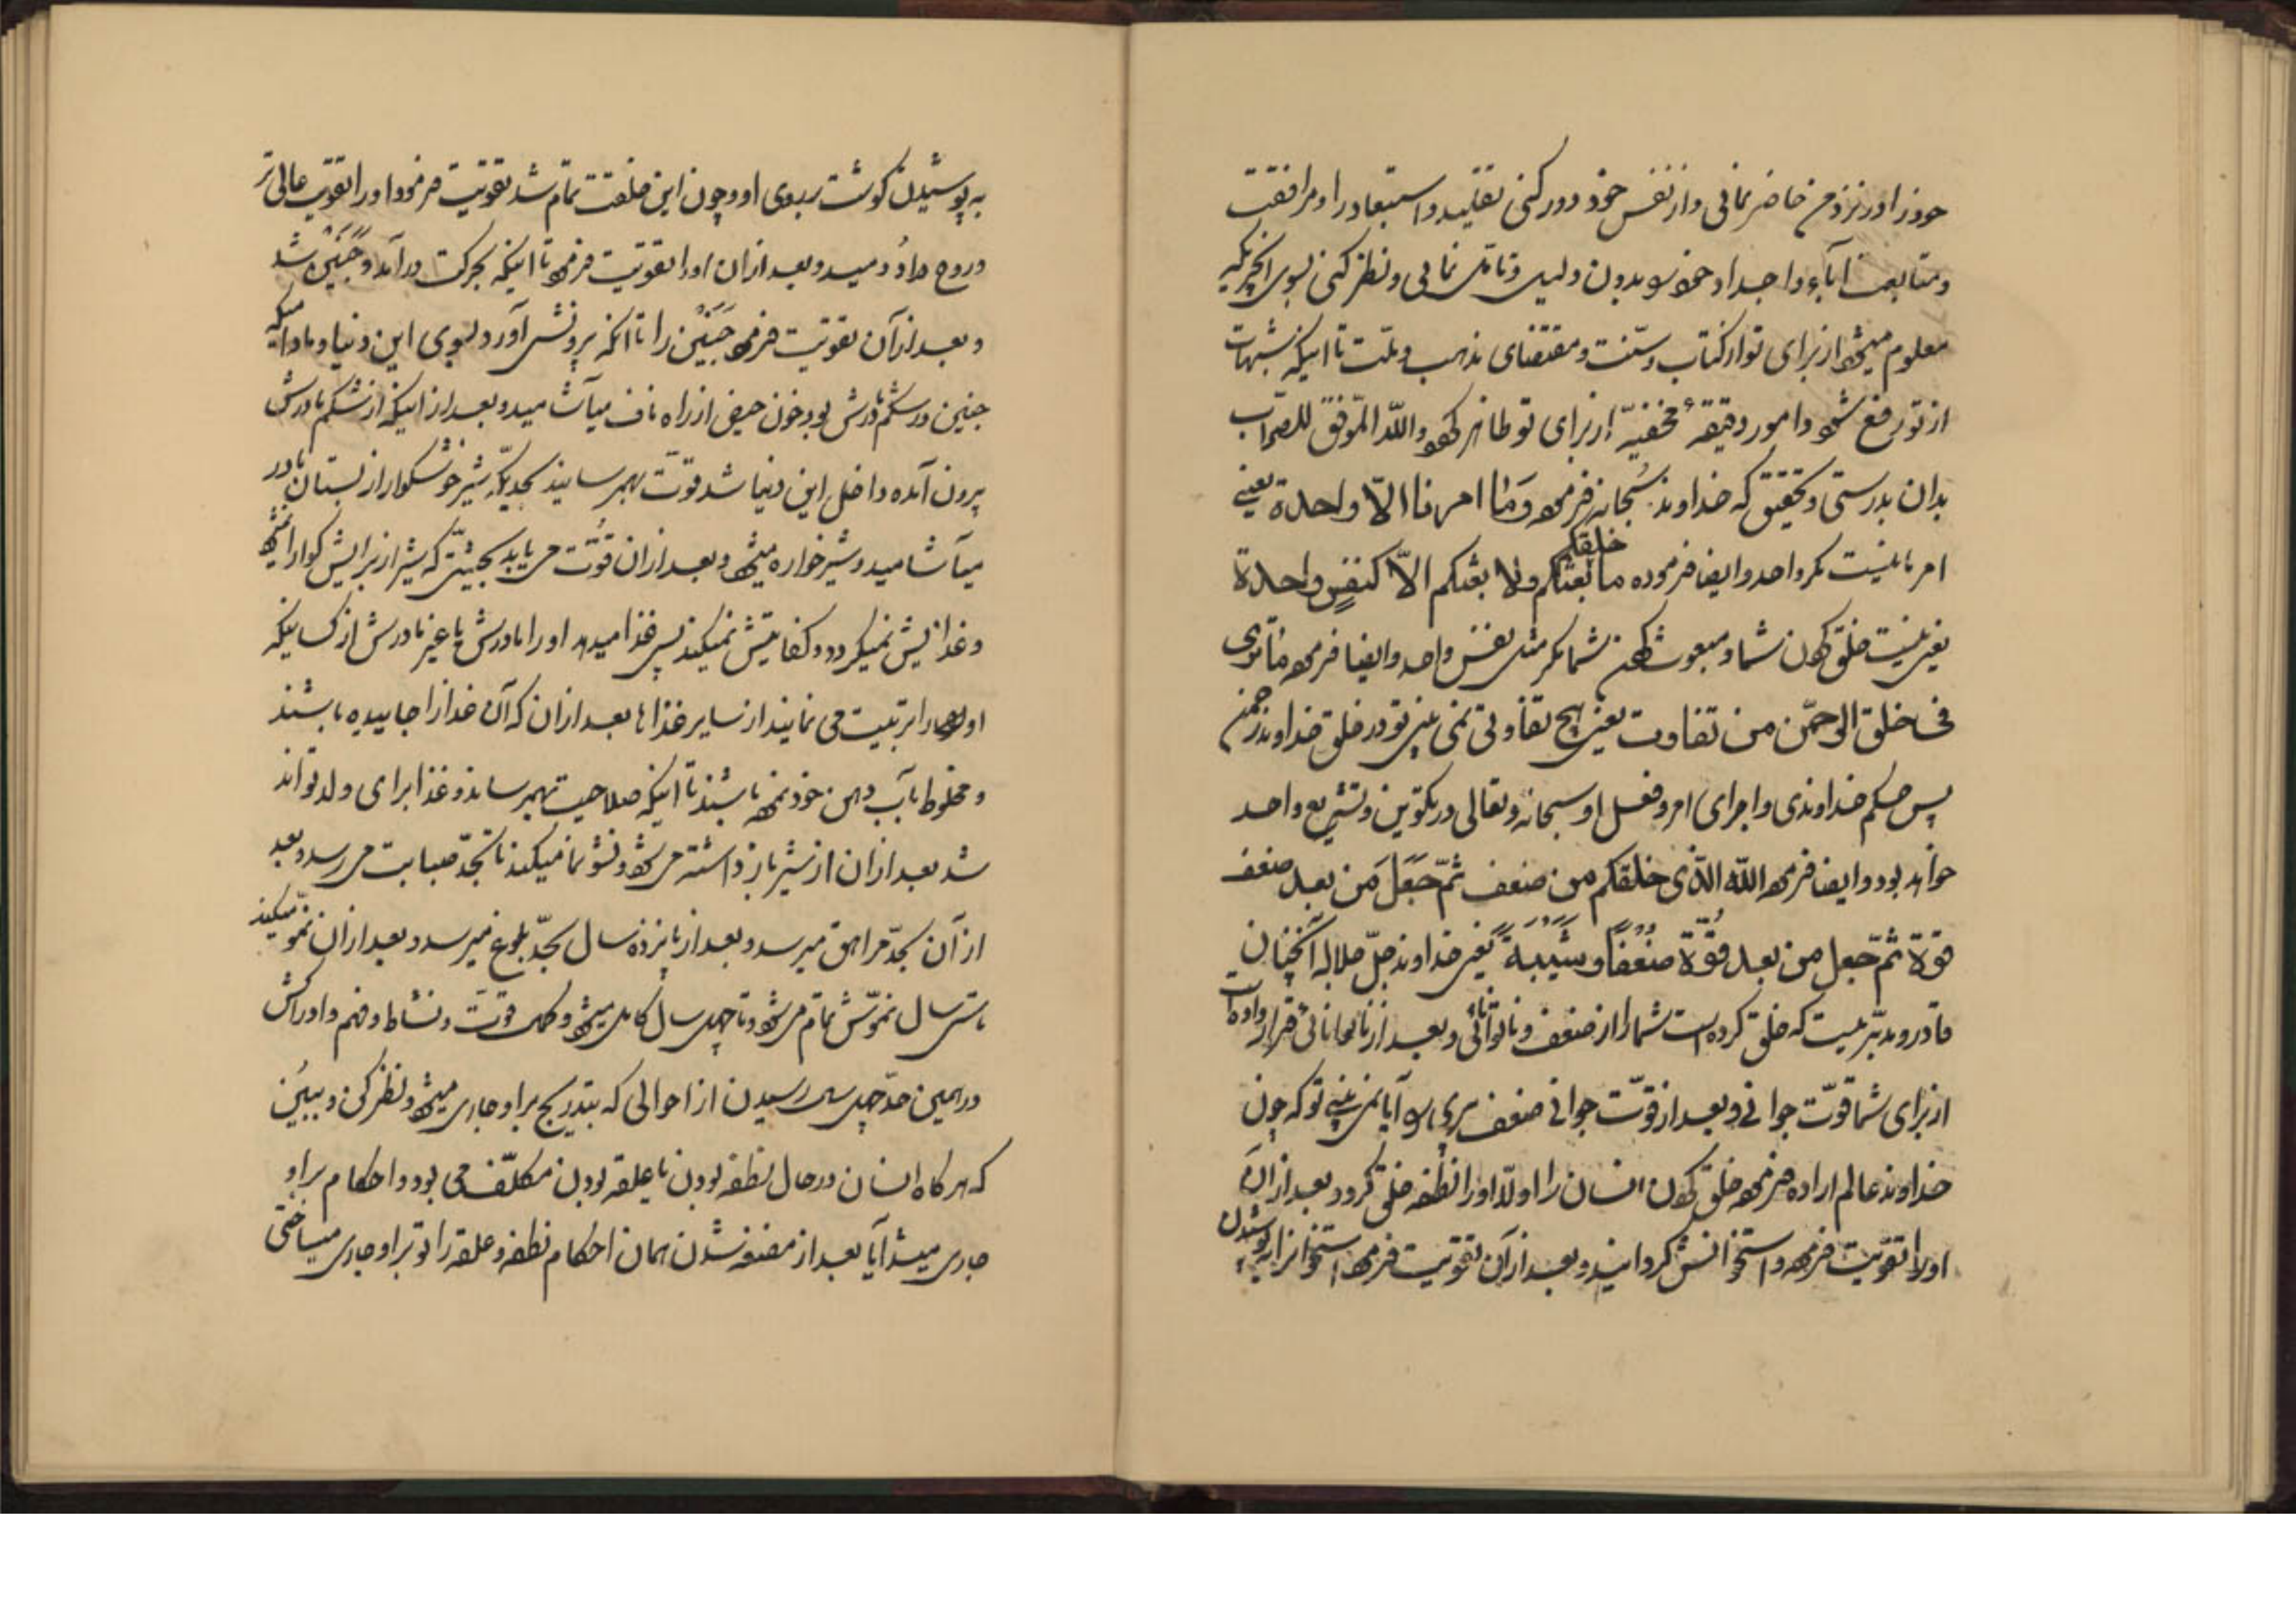 خود را در نزد من حاضر نمائی و از نفس خود دور کنی تقلید و استبعاد را و مرافقت
و متابعت اباء و اجداد خود بدون دلیل و تامل نمائی و نظر کنی بسوی انچیزیکه
معلوم میشود از برای تو از کتاب و سنت و مقتضای مذهب و ملت تا اینکه شبهات
از تو رفع شود و امور دقیقهٔ مخفیّه از برای تو ظاهر کردد و اللّه الموفّق للصواب
بدان بدرستی و تحقیق که خداوند سُبحانه فرموده وَمٰا امرنا الاّ واحدة یعنی
امر ما نیست مکر واحد و ایضا فرموده ما خلقکم ولا بعثکم الاّ کنفسٍ واحدة
یعنی نیست خلق کردن شما و مبعوث کردن شما مکر مثل نفس واحد و ایضا فرموده ماتری
فی خلق الرحمّن من تفاوت یعنی هیچ تفاوتی نمی بینی تو در خلق خداوند رحمن
پس حکم خداوندی و اجرای امر و فعل او سبحانه و تعالی در تکوین و تشریع واحد
خواهد بود و ایضا فرموده اللّه الّذی خلقکم من ضعف ثمّ جَعَلَ مَن بعد ضعف
قوة ثمّ جعل من بعد قُوّة ضعفًا و شَیْبَةً یعنی خداوند جلّ جلاله آنچنان
قادر و مدبّریست که خلق کرده است شما را از ضعف و ناتوانی و بعد از ناتوانائی قرار داده است
از برای شما قوّت جوانی و بعد از قوّت جوانی ضعف پیری را آیا نمی بینی تو که چون
خداوند عالم اراده فرموده خلق کردن انسان را اولاً او را نطفه خلق کرد و بعد از آن
او را تقویت فرموده و استخوانش کردانید و بعد از آن تقویت فرموده استخوانرا به پوشیدن
به پوشیدن کوشت بروی او و چون این خلقت تمام شد تقویت فرمود او را بقوت عالی تر
و روح در او دُمید و بعد از ان او را تقویت فرموده تا اینکه بحرکت درآمد و جَنیَن شد
و بعد از آن تقویت فرموده جنیَن را تا انکه بیرونش آورد بسوی این دنیا و مادامیکه
جنین در شکم مادرش بود خون حیض از راه ناف میآشامید و بعد از اینکه از شکم مادرش
بیرون آمده داخل این دنیا شد قوّت بهمرسانید بحدیکه شیر خوشکوار از پستان مادر
میآشامید و شیرخواره میشود و بعد از ان قُوّت می یابد بحیثیّتی که شیر از برایش کوارا نمیشود
و غذایش نمیکردد و کفایتش نمیکند پس غذا میدهد او را مادرش یا غیر مادرش از کسانیکه
اولاد را تربیت می نمایند از سایر غذاها بعد از ان که آن غذا را جاییده باشند
و مخلوط بآب دهن خود نموده باشند تا اینکه صلاحیت بهمرساند و غذا برای ولد تواند
شد بعد از ان از شیر باز داشته می شود و نشو نما میکند تا بحدّ صبابت می رسد و بعد
از آن بحدّ مراهق میرسد و بعد از پانزده سال بحدّ بلوغ میرسد و بعد از ان نموّ میکند
تا سی سال نموّش تمام می شود و تا چهل سال کامل میشود و کمال قوّت و نشاط و فهم و ادراکش
در همین حدّ چهل سال رسیدن از احوالی که بتدریج بر او جاری میشود نظر کن و ببیُن
که هر کاه انسان در حال نطفه بودن یا علقه بودن مکلّف می بود و احکام بر او
جاری میشد آیا بعد از مضغه شدن همان احکام نطفه و علقه را تو بر او جاری میساختی